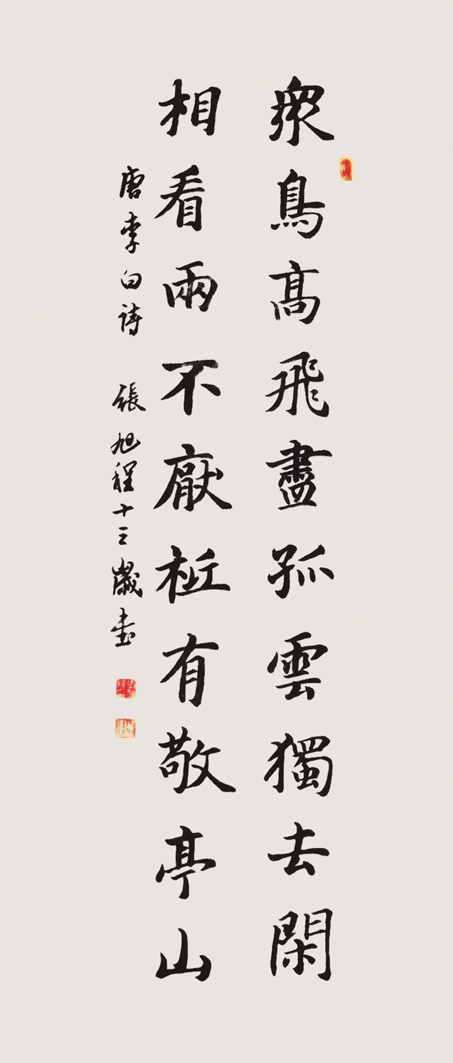 衆鳥髙飛盡孤雲獨去閑
相看兩不厭有敬亭山
唐李白詩 張旭程十三歲書